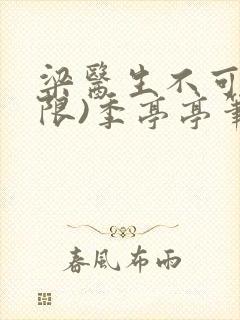 梁醫生不可
限)季亭亭筆
春風布雨